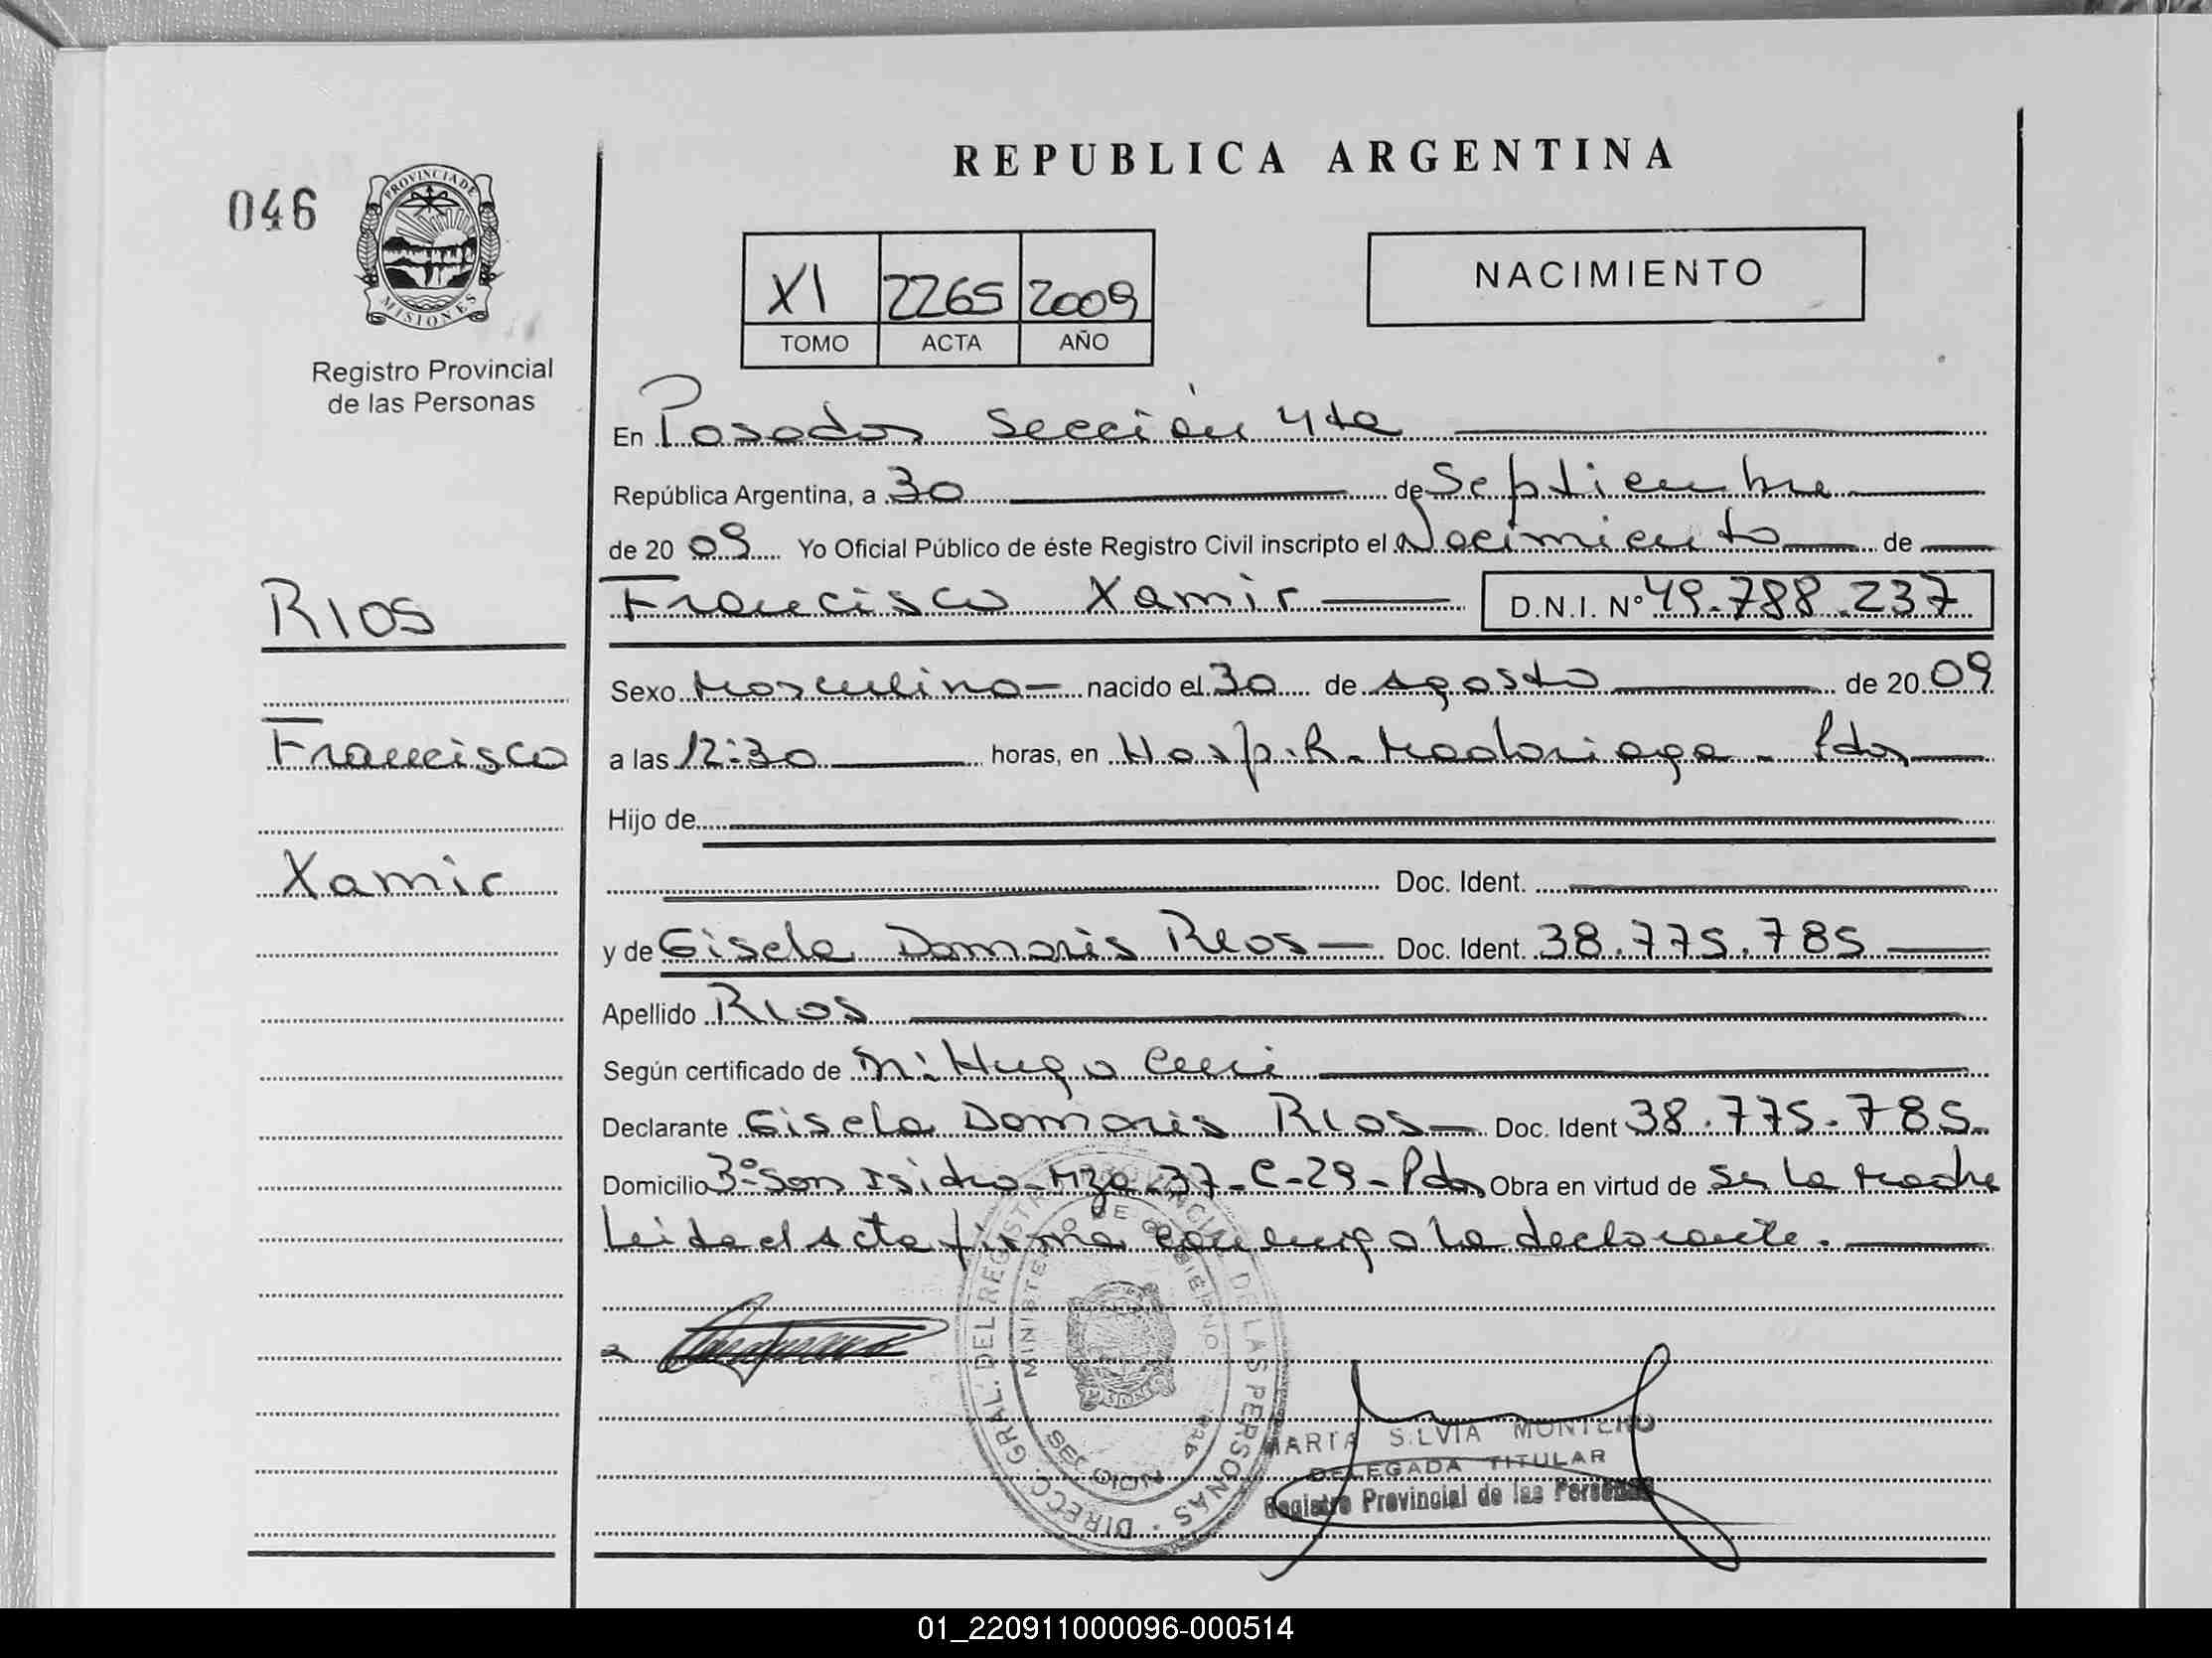 REPUBLICA ARGENTINA
046
PROVINCIA DE
MISIONES
Registro Provincial
de las Personas
XI 2265 2009
TOMO ACTA AÑO
NACIMIENTO
En Posadas Sección 4ta
República Argentina, a 30 de Septiembre
de 20 09 Yo Oficial Público de éste Registro Civil inscripto el Nacimiento de
Francisco Xamir D.N.I. Nº 49.788.237
RIOS
Francisco
Xamir
Sexo Masculino nacido el 30 de Agosto de 20 09
a las 12:30 horas, en Hosp. R. Madariaga - Pdas
Hijo de
Doc. Ident.
y de Gisela Damaris Rios Doc. Ident. 38.775.785
Apellido Rios
Según certificado de Hugo
Declarante Gisela Damaris Rios Doc. Ident 38.775.785
Domicilio 3º San Isidro - Mza - 37 - C - 29 - Pdas Obra en virtud de ser la Madre
Leida el Acta firma conmigo la declarante.
DIRECC. GRAL. DEL REGISTRO PROVINCIAL DE LAS PERSONAS
MINISTERIO DE GOBIERNO
SECCION 4ta
MARTA SILVIA MONTERO
DELEGADA TITULAR
Registro Provincial de las Personas
01_220911000096-000514